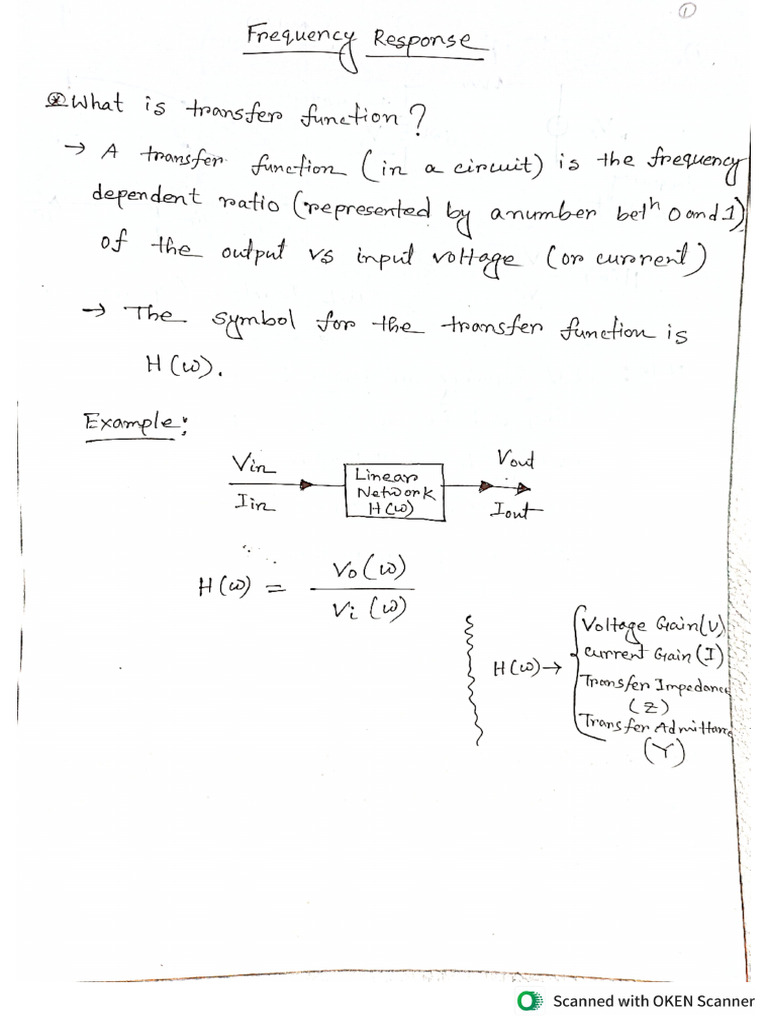 1
Frequency Response
⊛ What is transfer function?
→ A transfer function (in a circuit) is the frequency
dependent ratio (represented by a number betⁿ 0 and 1)
of the output vs input voltage (or current)
→ The symbol for the transfer function is
H(ω).
Example:
Vin
Iin
Linear
Network
H(ω)
Vout
Iout
H(ω) = Vo(ω) / Vi(ω)
H(ω) →
Voltage Gain(V)
Current Gain(I)
Transfer Impedance
(Z)
Transfer Admittance
(Y)
Scanned with OKEN Scanner